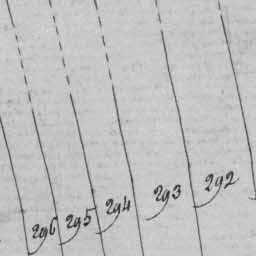 296 295 294 293 292